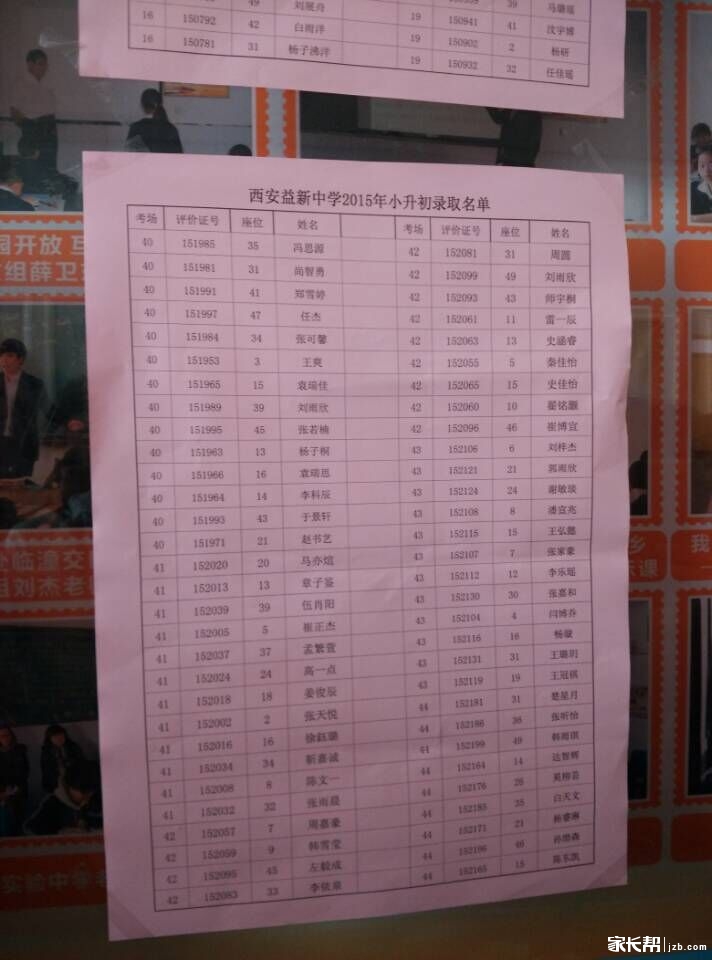 49 刘晟舟 39 马璐瑶
16 150792 42 白雨洋 19 150941 41 沈宇博
16 150781 31 杨子沸洋 19 150902 2 杨研
19 150932 32 任佳瑶
西安益新中学2015年小升初录取名单
考场 评价证号 座位 姓名 考场 评价证号 座位 姓名
40 151985 35 冯思源 42 152081 31 周圆
40 151981 31 尚智勇 42 152099 49 刘雨欣
40 151991 41 郑雪婷 42 152093 43 师宇桐
40 151997 47 任杰 42 152061 11 雷一辰
40 151984 34 张可馨 42 152063 13 史涵睿
40 151953 3 王爽 42 152055 5 秦佳怡
40 151965 15 袁瑞佳 42 152065 15 史佳怡
40 151989 39 刘雨欣 42 152060 10 翟铭灏
40 151995 45 张若楠 42 152096 46 崔博宜
40 151963 13 杨子桐 43 152106 6 刘梓杰
40 151966 16 袁瑞思 43 152121 21 郭雨欣
40 151964 14 李科辰 43 152124 24 谢敏琰
40 151993 43 于景轩 43 152108 8 潘宜兆
40 151971 21 赵书艺 43 152115 15 王弘懿
41 152020 20 马亦煊 43 152107 7 张家豪
41 152013 13 章子鉴 43 152112 12 李乐瑶
41 152039 39 伍肖阳 43 152130 30 张嘉和
41 152005 5 崔正杰 43 152104 4 闫博乔
41 152037 37 孟繁萱 43 152116 16 杨璇
41 152024 24 高一点 43 152131 31 王璐玥
41 152018 18 姜俊辰 43 152119 19 王冠祺
41 152002 2 张天悦 44 152181 31 楚星月
41 152016 16 徐赵璐 44 152186 36 张昕怡
41 152034 34 靳嘉诚 44 152199 49 韩雨琪
41 152008 8 陈文一 44 152164 14 达智辉
41 152032 32 张雨晨 44 152176 26
42 152057 7 周嘉豪 44 152185 35 白天文
42 152059 9 韩雪莹 44 152171 21 杨睿琳
42 152095 45 左毅成 44 152196 46
42 152083 33 李依泉 44 152165 15 陈东凯
园开放 互
组薛卫
处临潼交
组刘杰老
实验中学
乡
示课
我
家长帮 jzb.com